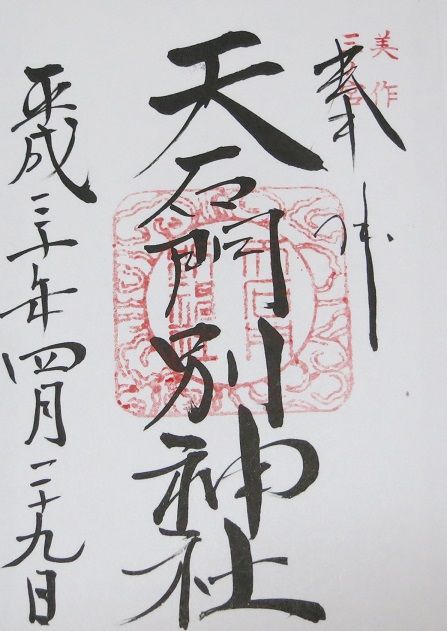 美作
三宮
奉拝
天石門別神社
平成三十年四月二十九日